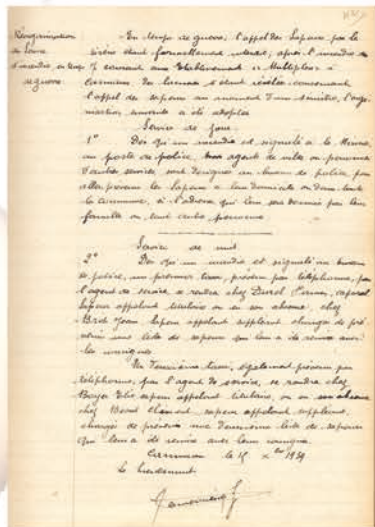 Réorganisation En temps de guerre, l'appel des Sapeurs par la
du Service sirène étant formellement interdit, après l'incendie du
d'incendie en temps courant aux Etablissements "Multiplex" à
de guerre Carmaux. Des lacunes s'étant révélées concernant
l'appel des sapeurs au moment d'un sinistre, l'orga-
nisation suivante a été adoptée
Service de jour
1° Dès qu'un incendie est signalé à la Mairie,
au poste de police, agents de ville ou personnes
d'autres services sont désignés au bureau de police pour
aller prévenir les Sapeurs à leur domicile ou dans toute
la commune, à l'adresse qui leur sera donnée par leur
famille ou toute autre personne
Service de nuit
2° Dès qu'un incendie est signalé au bureau
de police, un premier tour, prévenu par téléphone, par
l'agent de service, se rendra chez caporal
sapeur appelant titulaire ou en son absence, chez
Jean sapeur appelant suppléant chargés de pré-
venir une liste de sapeurs qui leur a été remise avec
les consignes.
Un deuxième tour, également prévenu par
téléphone, par l'agent de service, se rendra chez
sapeur appelant titulaire, ou en son absence
chez Clément sapeur appelant suppléant,
chargés de prévenir une deuxième liste de sapeurs
qui leur a été remise avec leurs consignes.
Carmaux le 15 Xbre 1939
Le Lieutenant